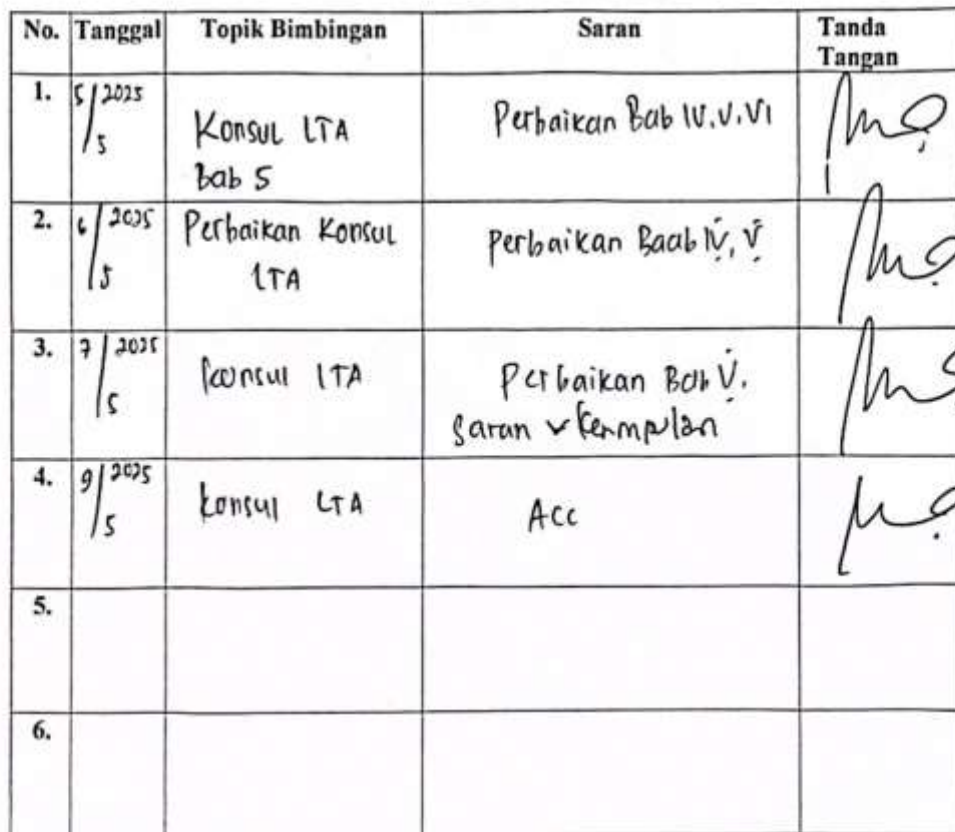 No. Tanggal Topik Bimbingan Saran Tanda Tangan
1. 5/5 2025 Konsul LTA Bab 5 Perbaikan Bab IV, V, VI
2. 6/5 2025 Perbaikan Konsul LTA Perbaikan Baab IV, V
3. 7/5 2025 Konsul LTA Perbaikan Bab V. Saran
4. 9/5 2025 Konsul LTA Acc
5.
6.